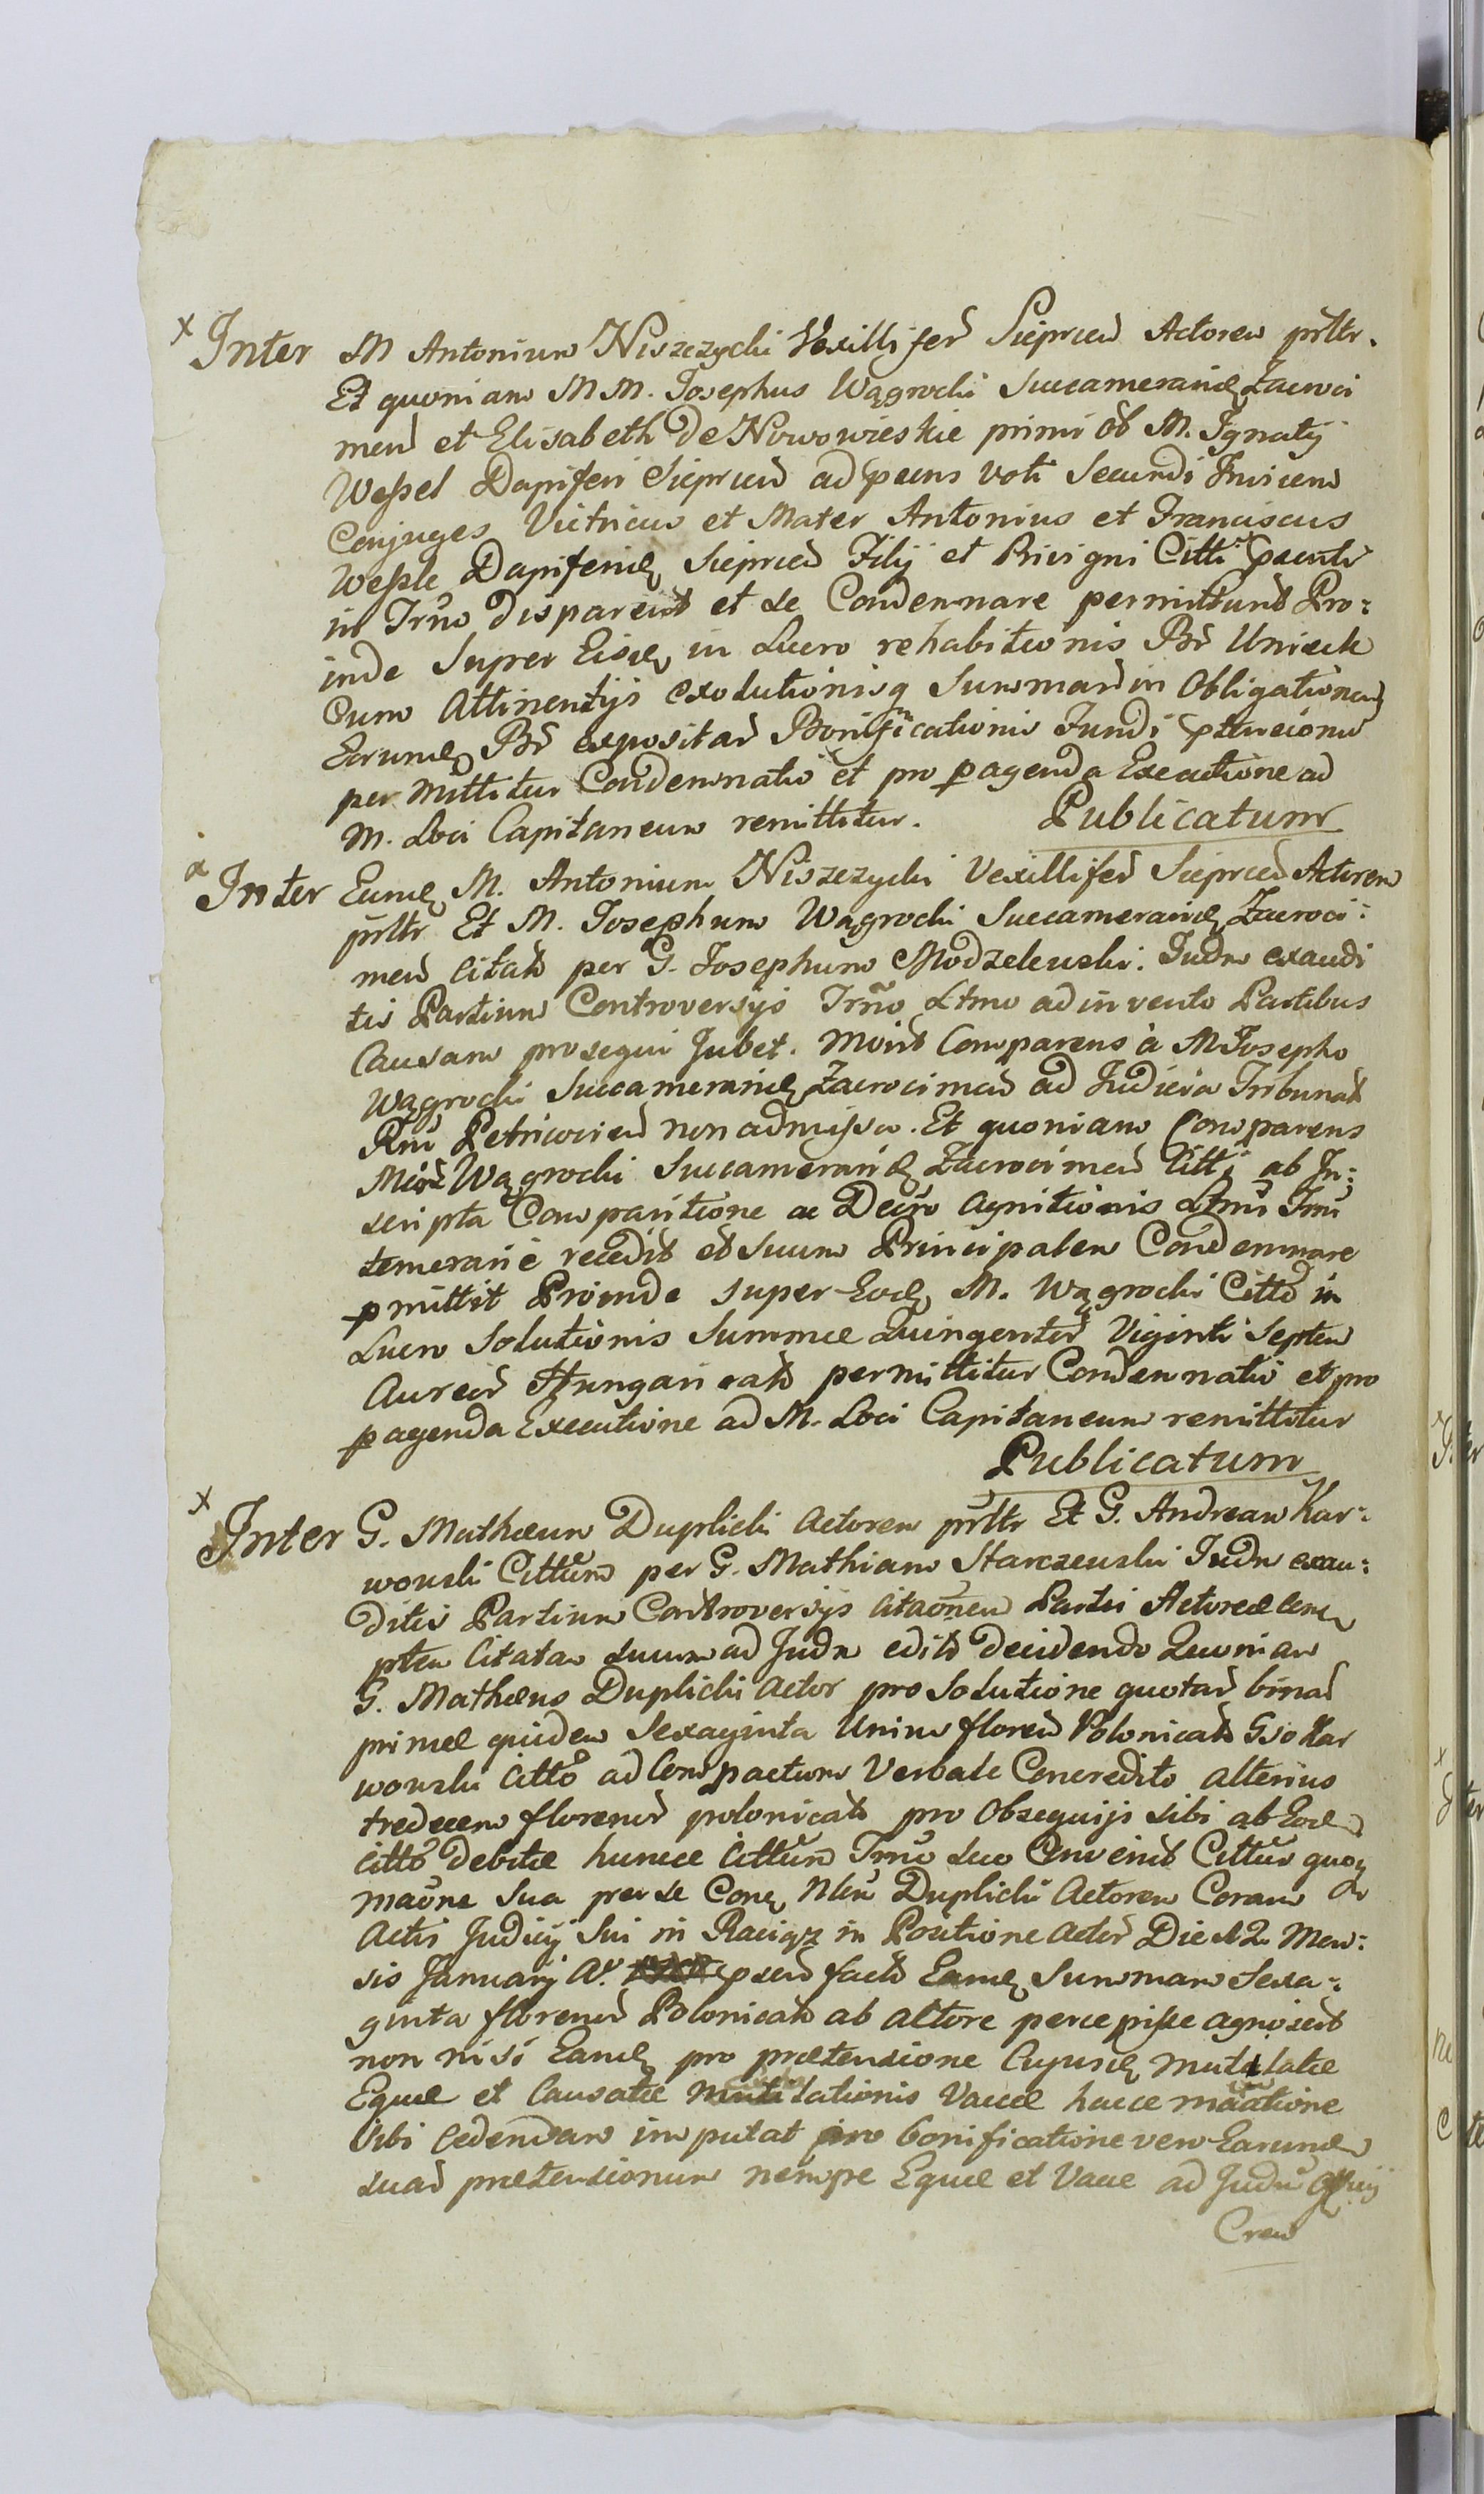 x Inter M Antonium Niszczycki Vexillifer Sieprcen Actorem prltr.
Et quoniam M M. Josephus Wągrocki Succameraride Zacroci
men et Elisabeth De Nowowieskie primi Ob M. Ignatij
Weßel Dapiferi Sieprcen ad psens voti Secundi Invicem
Conjuges Victricus et Mater Antonius et Franciscus
Weßle Dapiferid Sieprcen Filij et Privigni Citti psenti
in Trno disparent et se Condemnare permittunt Pro:
inde Super Eisd in Lucro rehabitionis Br Unieck
Cum Attinentijs exolutionisq Summar in Obligationem
Earund Br expositar Bonificationis Fundi ptensionu
per mittitur Condemnatio et pro pagenda Executione ad
M. Loci Capitaneum remittitur. Publicatum
x Inter Eund M. Antonium Niszczycki Vexillifer Sieprcen Actorem
prltr Et M. Josephum Wągrocki Succamerarid Zacroci:
men Citat per G. Josephum Modzelewski. Judm exaudi
tis Partium Controversijs Trno Ltmo ad invento Partibus
Causam prosequi Jubet. Moit Comparens à M Josepho
Wągrocki Succamerarid Zacrocimen ad Judicia Tribunat
Rni Petricovien non admissa. Et quoniam Comparens
Wągrocki Succamerarid Zacrocimen Citti ab In:
scripta Comparitione ac Decro Agnitionis Ltmi Trni
temerariè recedit et Suum Principalem Condemnare
pmittit Proinde super Eod M. Wągrocki Citto in
Lucro Solutionis Summæ Quingentor Viginti Septem
Aureor Hungaricat permittitur Condemnatio et pro
pagenda Executione ad M. Loci Capitaneum remittitur
Publicatum
x Inter G. Mathæum Duplicki Actorem prltr Et G. Andream Kar:
wowski Cittum per G. Mathiam Starczewski Judm exau:
ditis Partium Controversijs Citaonem Partis Actoreæ
ptem Citatam suum ad Judm edit decidendo Quoniam
G. Mathæus Duplicki Actor pro Solutione quotar binar
primæ quidem Sexaginta Unius floren Polonicat Gso Kar
wowski Citto ad Compactum Verbale Concredito alterius
tredecem florenor polonicat pro Obsequijs sibi ab Eod
Citto debitæ huncce Cittum Trno suo Convenit Cittus quoq
maone sua per se Conq Nlem Duplicki Actorem Coram
Actis Judicij Sui in Raciąz in Positione Actor Die 12 Men:
sis January Aº psen facto Eamd Summam Sexa:
ginta florenor Polonicat ab Actore percepiße agnoscit
non nisi Eamd pro prætensione Cujusd mutilatæ
Equæ et Causatæ mutilationis Vaccæ hacce
Sibi Cedendam imputat pro bonificatione vero Earund
suar prætensionum nempe Equæ et Vaccæ ad Judm
Crem